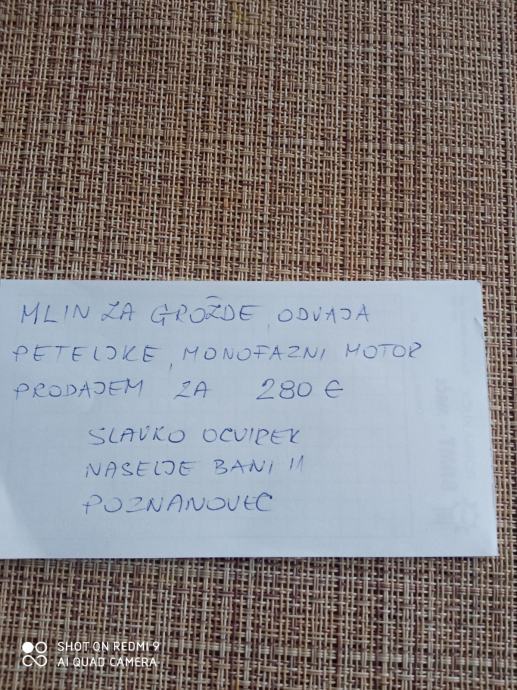 MLIN ZA GROŽDE, ODVAJA
PETELJKE, MONOFAZNI MOTOR
PRODAJEM ZA 280 €
SLAVKO OCVIREK
NASELJE BANI 11
POZNANOVEC
SHOT ON REDMI 9
AI QUAD CAMERA